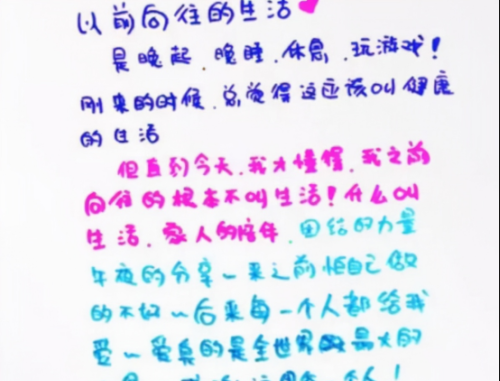 以前向往的生活
是晚起、晚睡、休息、玩游戏!
刚来的时候、总觉得这应该叫健康
的生活
但直到今天、我才懂得、我之前
向往的根本不叫生活!什么叫
生活、家人的陪伴、团结的力量
午夜的分享~来之前怕自己做
的不好~后来每一个人都给我
爱~爱真的是全世界最大的